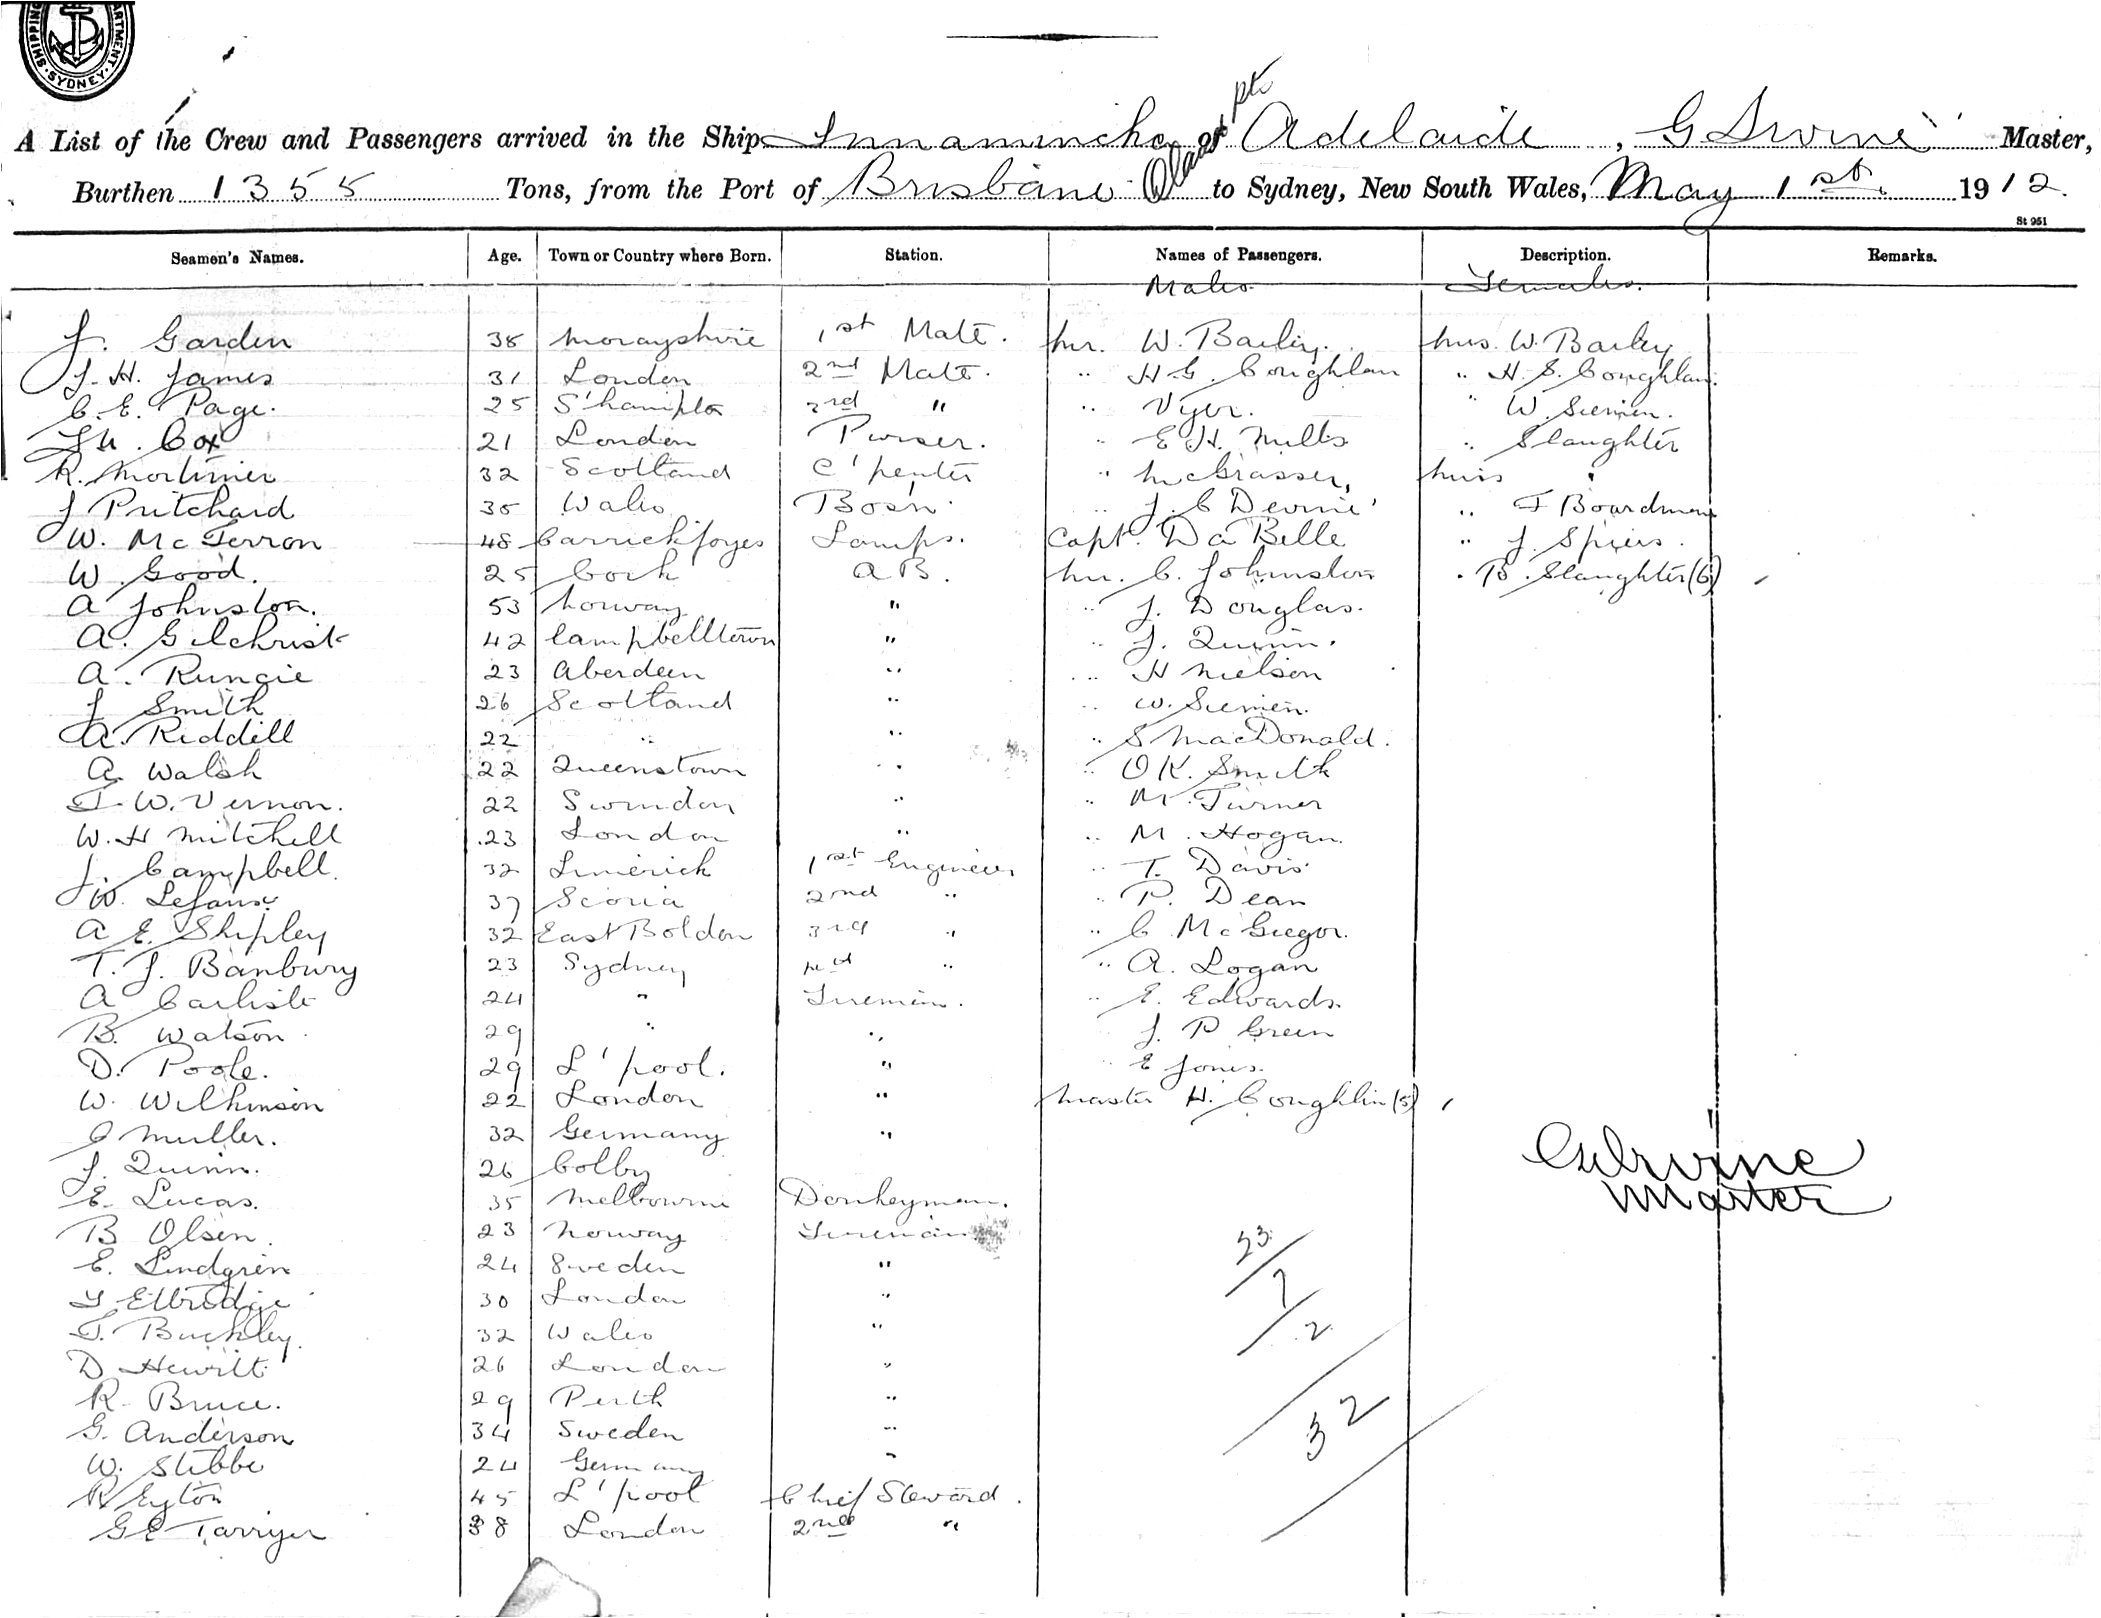 SHIPPING DEPARTMENT · SYDNEY ·
A List of the Crew and Passengers arrived in the Ship Innamincka of pt Adelaide, G Irvine Master,
Burthen 1355 Tons, from the Port of Brisbane to Sydney, New South Wales, May 1st 1912.
St 951
Seamen's Names. Age. Town or Country where Born. Station. Names of Passengers. Description. Remarks.
Males Females.
J. Garden 38 Morayshire 1st Mate. Mr. W. Bailey. Mrs. W. Bailey
J. H. James 31 London 2nd Mate. " H. G. Coughlan " H. S. Coughlan.
C. E. Page. 25 S'hampton 3rd " " Vyer. " W. Siemen.
Cox 21 London Purser. " E. H. Mills " Slaughter
R. Mortimer 32 Scotland C'penter " McGrasser, Miss "
J Pritchard 35 Wales Bosn. " J. C Devine " F Boardman
W. McFerron 48 Carrickfoyes Lamps. Capt. Da Belle " J. Spiers.
W. Good. 25 Cork A B. Mr. C. Johnston " B. Slaughter (6)
A Johnston. 53 Norway " " J. Douglas.
A. Gilchrist 42 Campbelltown " " J. Quinn.
A. Runcie 23 Aberdeen " " H Nielson
J Smith 26 Scotland " " W. Siemen.
A. Riddell 22 " " " S MacDonald.
A. Walsh 22 Queenstown " " O K. Smith
T. W. Vernon. 22 Swindon " " M. Turner
W. H Mitchell 23 London " " M. Hogan
J. Campbell. 32 Limerick 1st Engineer " T. Davis
W. Lefanu 37 Scoria 2nd " " P. Dean
A E. Shipley 32 East Boldon 3rd " " C. McGregor.
T. J. Banbury 23 Sydney " " A. Logan
A Carlisle 24 " Fireman. " E. Edwards.
B. Watson 29 " " J. P Green
D. Poole. 29 L'pool. " " E Jones.
W. Wilkinson 22 London " Master H. Coughlin (5)
J Muller. 32 Germany "
J. Quinn. 26 Colby
E. Lucas. 35 Melbourne Donkeyman.
B Olsen. 23 Norway Fireman
E. Lindgren 24 Sweden "
30 London "
T. Buckley. 32 Wales "
D Hewitt 26 London "
R. Bruce. 29 Perth "
G. Anderson 34 Sweden "
W. Stibbe 24 Germany "
R Eyton 45 L'pool Chief Steward.
G E Tarryer 38 London 2nd "
G Irvine
Master
23
7
2
32